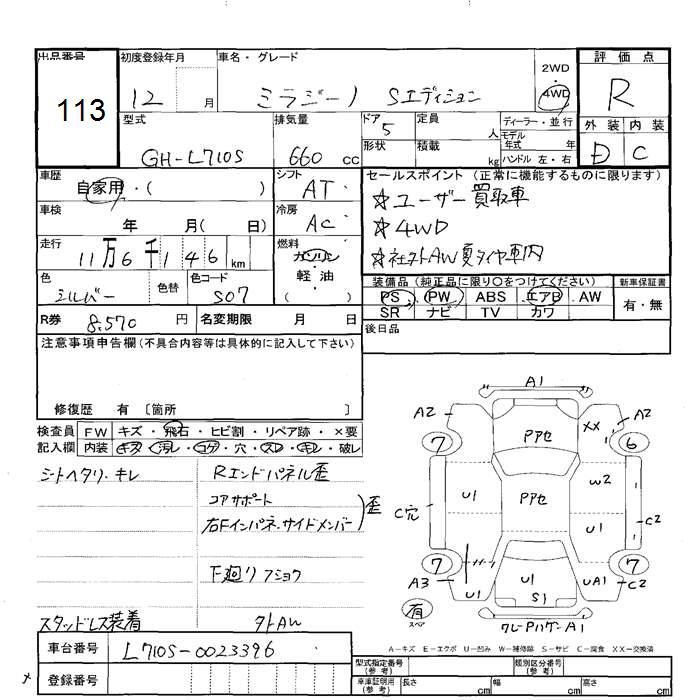 出品番号
113
初度登録年月
12 月
車名・グレード
ミラジーノ Sエディション
2WD
・
4WD
評価点
R
外装 内装
D C
型式
GH-L710S
排気量
660 cc
ドア
5
形状
定員
人
積載
kg
ディーラー・並行
モデル
年式 年
ハンドル 左・右
車歴
自家用・( )
シフト
AT
車検
年 月( 日)
冷房
AC
走行
11万6千146 km
燃料
ガソリン
軽・油
( )
色
シルバー
色替
色コード
S07
R券 8,570 円
名変期限 月 日
セールスポイント(正常に機能するものに限ります)
☆ユーザー買取車
☆4WD
装備品(純正品に限り○をつけてください)
PS PW ABS エアB AW
SR ナビ TV カワ
新車保証書
有・無
後日品
注意事項申告欄(不具合内容等は具体的に記入して下さい)
修復歴 有〔箇所 〕
検査員
記入欄
FW キズ・飛石・ヒビ割・リペア跡・×要
内装 キズ・汚レ・コゲ・穴・スレ・キレ・破レ
シートヘタリ・キレ
Rエンドパネル歪
コアサポート
右Fインパネ.サイドメンバー
歪
下廻リフショク
スタッドレス装着
タトAW
車台番号 L710S-0023396
登録番号
A1
A2
XX
A2
7
6
Pアセ
W2
U1
Pアセ
C穴
U1
C2
7
7
A3
U1
U1
S1
UA1
C2
有
スペア
A-キズ E-エクボ U-凹み W-補修跡 S-サビ C-腐食 XX-交換済
型式指定番号
(参考)
類別区分番号
(参考)
車庫証明用
(参考)
長さ cm 幅 cm 高さ cm